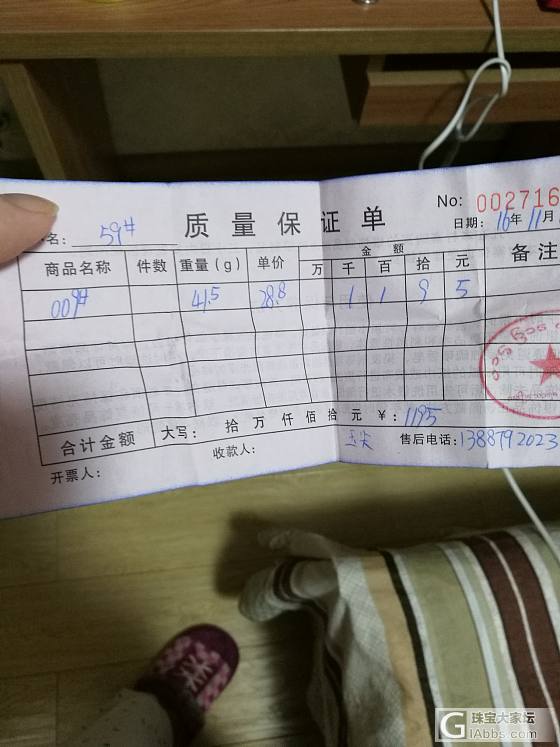 No: 002716
质量保证单
名: 59# 日期: 16年11月
商品名称 件数 重量(g) 单价 金额 备注
万 千 百 拾 元
009# 41.5 28.8 1 1 9 5
合计金额 大写: 拾 万 仟 佰 拾 元 ¥: 1195
开票人: 收款人: 售后电话: 1388792023
珠宝大家坛
GIAbbs.com